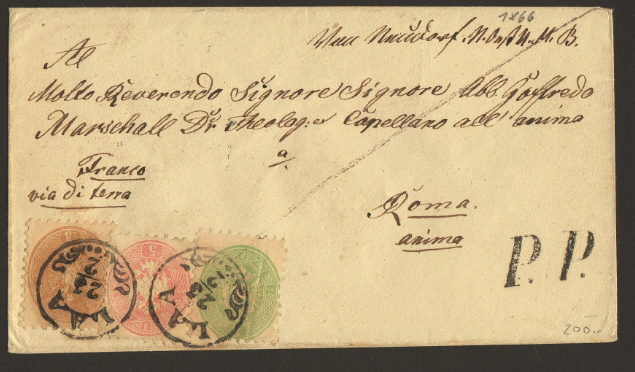 1866
Al
Molto Reverendo Signore Signore Abb. Goffredo
Marschall Dr Theolog: e Capellano all' anima
a
Franco
via di terra
Roma.
anima
P.P.
LAA
LAA
200.-